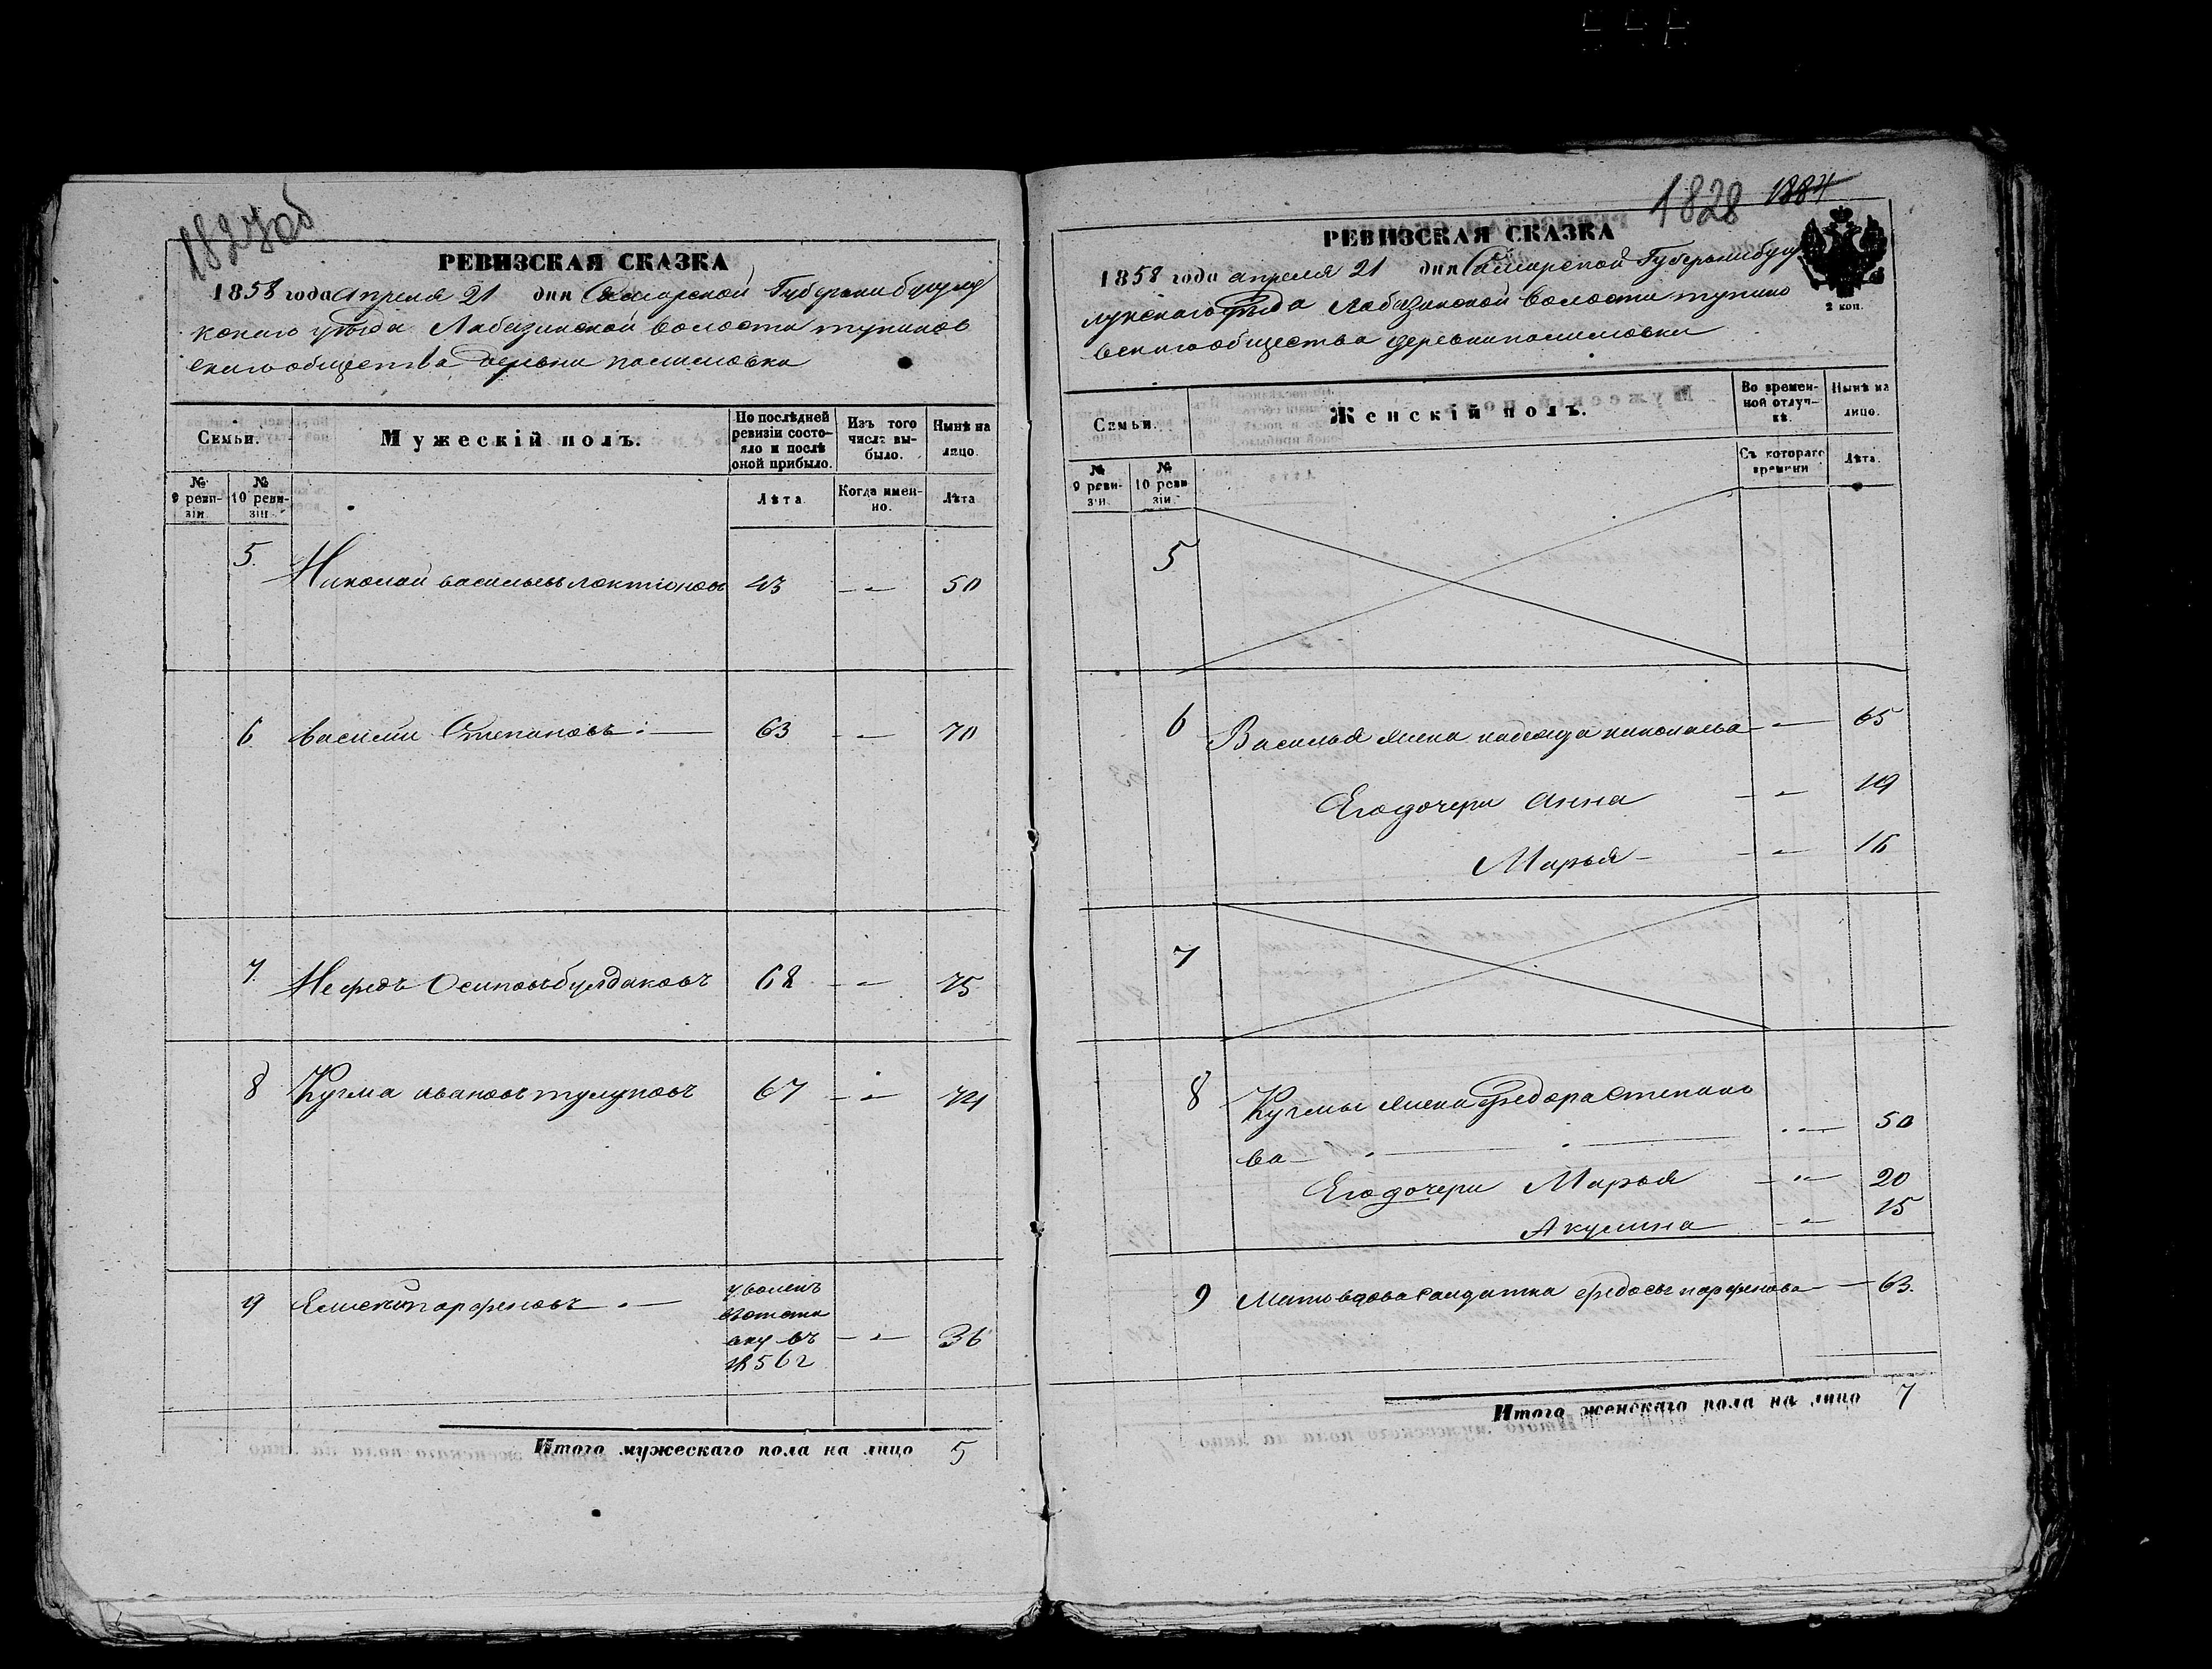 1827об
РЕВИЗСКАЯ СКАЗКА
1858 года апреля 21 дня Самарской Губернии бузулу
кскаго уѣзда Лабазинской волости тупиков
скаго общества деревни
Семьи.
Мужескій полъ.
По послѣдней ревизіи состояло и послѣ оной прибыло.
Изъ того числа выбыло.
Нынѣ на лицо.
№ 9 ревизіи.
№ 10 ревизіи.
Лѣта
Когда именно.
Лѣта
5. Николай васильевъ локтіоновъ 43 — 50
6. василии Степановъ: — 63 — 70
7. Нефедъ Осиповъ булдаковъ 68 — 75
8 Кузма ивановъ тулуповъ 67 — 74
9 парфеновъ — уволенъ
въ
1856 г — 36
Итого мужескаго пола на лицо 5
1828 1884
РЕВИЗСКАЯ СКАЗКА
1858 года апреля 21 дня Самарской Губернии бузу
лукскаго уѣзда Лабазинской волости тупико
вскаго общества деревни
2 коп.
Семьи.
Женскій полъ.
Во временной отлучкѣ.
Нынѣ на лицо.
№ 9 ревизіи.
№ 10 ревизіи.
Съ котораго времени
Лѣта.
5
6 Василья жена надежда николаева — 65
Его дочери Анна — 19
Марья — 16
7
8 Кузмы жена федора степано
ва — 50
Его дочери Марья — 20
Акулина — 15
9 солдатка федосья парфенова — 63.
Итого женскаго пола на лицо 7